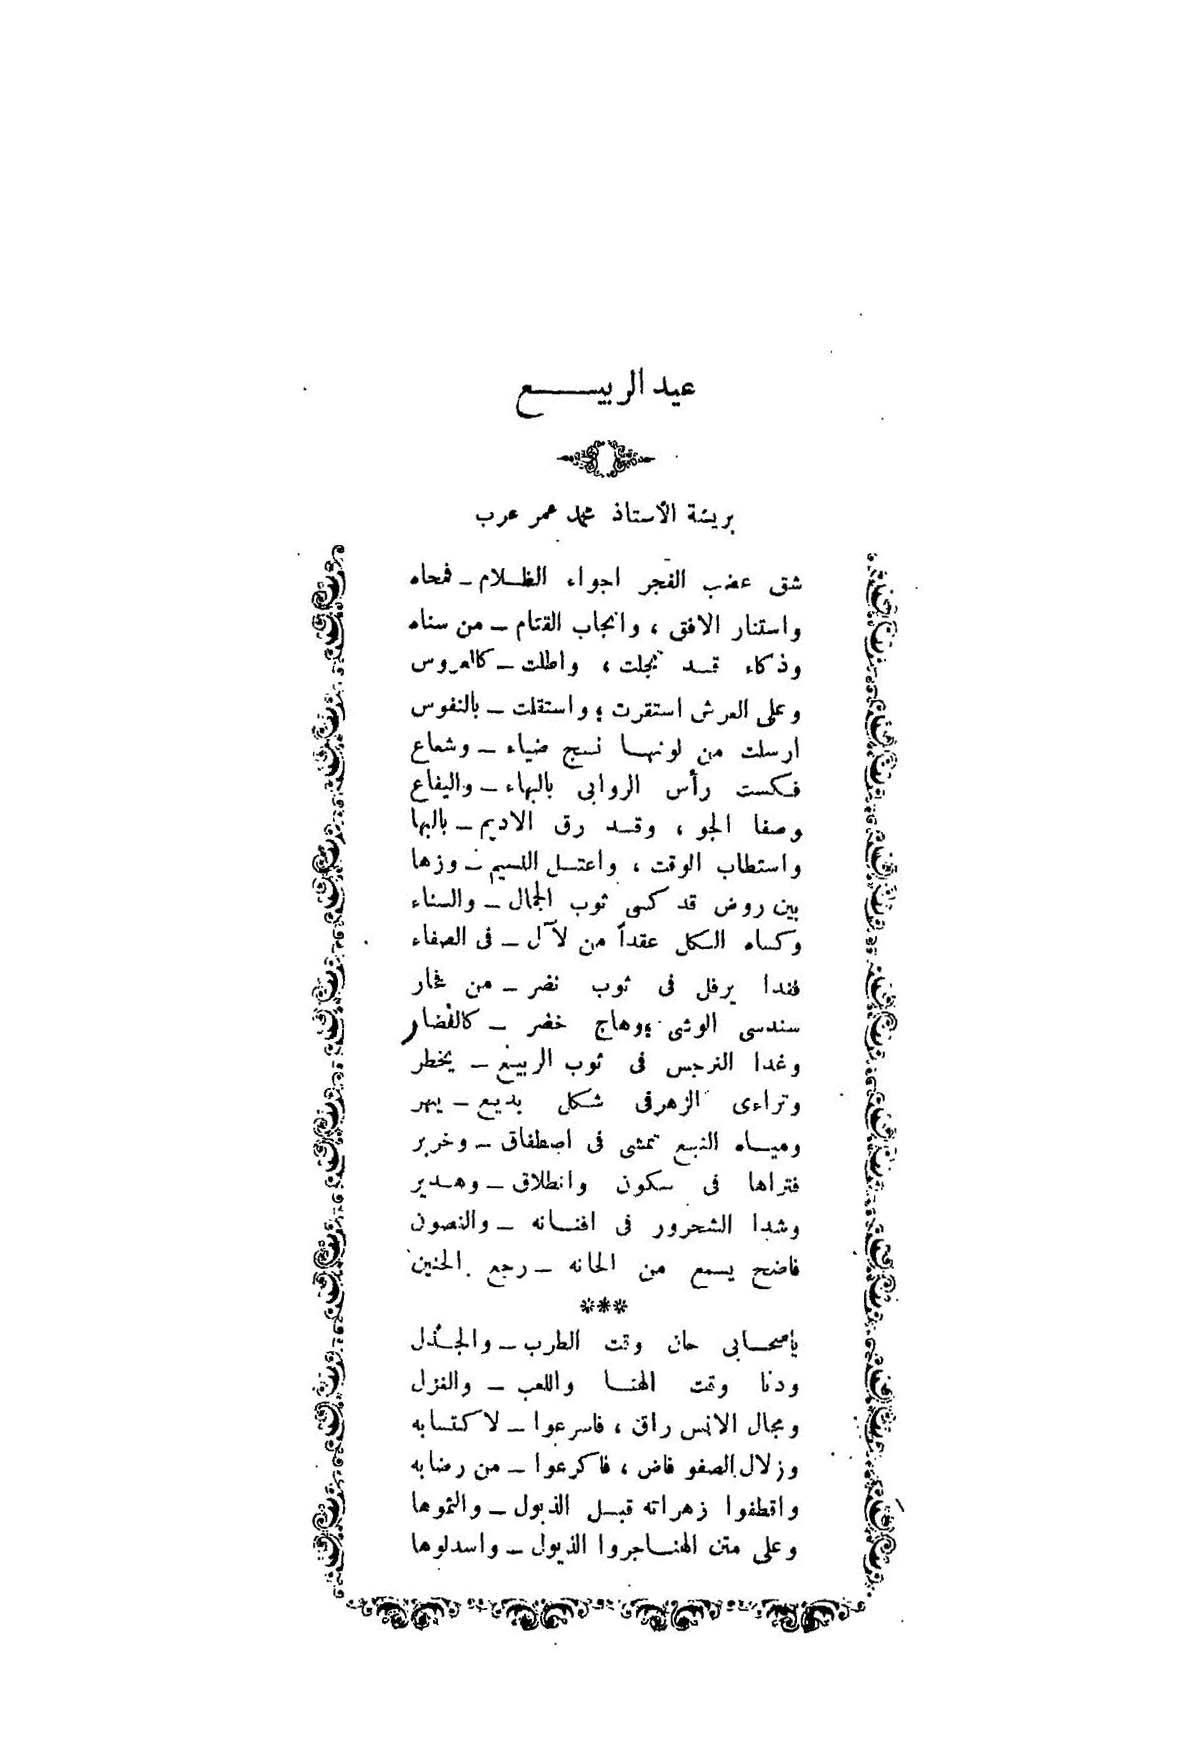 عيد الربيـــــع
بريشة الأستاذ محمد عمر عرب
شق عضب الفجر اجواء الظـلام ــ فمحاه
واستنار الافق ، وانجاب القتام ــ من سناه
وذكاء قـد تجلت ، واطلت ــ كالعروس
وعلى العرش استقرت ؛ واستقلت ــ بالنفوس
ارسلت من لونهـا نسج ضياء ــ وشعاع
فـكست رأس الروابى بالبهاء ــ واليفاع
وصفا الجو ، وقـد رق الاديم ــ بالبها
واستطاب الوقت ، واعتـل النسيم ــ وزها
بين روض قد كسى ثوب الجمال ــ والسناء
وكساه الـكل عقداً من لآل ــ فى الصفاء
فغدا يرفل فى ثوب نضر ــ من فخار
سندسى الوشى ؛ وهاج خضر ــ كالغضار
وغدا النرجس فى ثوب الربيع ــ يخطر
وتراءى الزهر فى شكل بديع ــ يبهر
وميـاه النبع تمشى فى اصطفاق ــ وخرير
فتراها فى سكون وانطلاق ــ وهـدير
وشدا الشحرور فى افنـانه ــ والغصون
فاضح يسمع من الحانه ــ رجع الحنين
***
يا صحـابى حان وقت الطرب ــ والجـذل
ودنا وقت الهنـا واللعب ــ والغزل
ومجال الانس راق ، فاسرعوا ــ لاكتسابه
وزلال الصفو فاض ، فاكرعوا ــ من رضابه
واقطفوا زهراته قبـل الذبول ــ والثموها
وعلى متن الهنـا جروا الذيول ــ واسدلوها